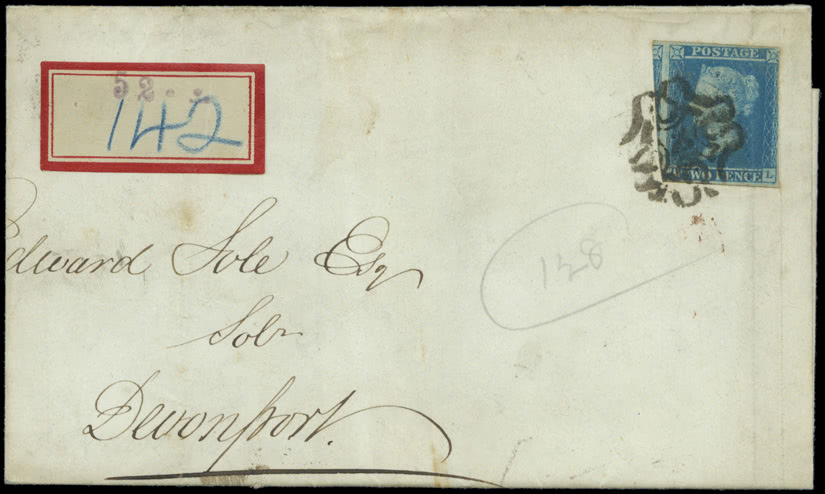 52..
142
POSTAGE
TWO PENCE L
Edward Sole Esqr
Solr
Devonport.
128